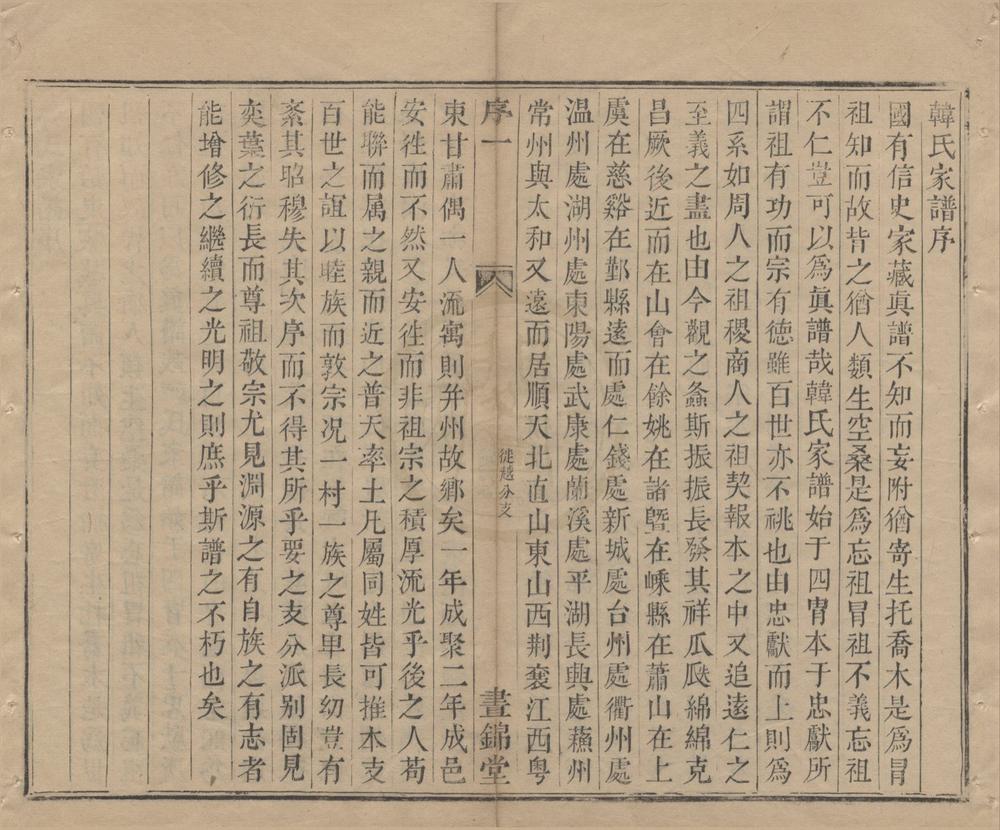 韓氏家譜序
國有信史家藏眞譜不知而妄附猶寄生托喬木是爲冒
祖知而故昔之猶人類生空桑是爲忘祖冒祖不義忘祖
不仁豈可以爲眞譜哉韓氏家譜始于四胄本于忠獻所
謂祖有功而宗有德雖百世亦不祧也由忠獻而上則爲
四系如周人之祖稷商人之祖契報本之中又追遠仁之
至義之盡也由今觀之螽斯振振長發其祥瓜瓞綿綿克
昌厥後近而在山會在餘姚在諸暨在嵊縣在蕭山在上
虞在慈谿在鄞縣遠而處仁錢處新城處台州處衢州處
温州處湖州處東陽處武康處蘭溪處平湖長興處蘓州
常州與太和又遠而居順天北直山東山西荆襄江西粤
序一
徙越分支
晝錦堂
東甘肅偶一人流寓則并州故鄉矣一年成聚二年成邑
安徃而不然又安徃而非祖宗之積厚流光乎後之人苟
能聯而属之親而近之普天率土凡屬同姓皆可推本支
百世之誼以睦族而敦宗况一村一族之尊卑長幼豈有
紊其昭穆失其次序而不得其所乎要之支分派别固見
奕葉之衍長而尊祖敬宗尤見淵源之有自族之有志者
能增修之繼續之光明之則庶乎斯譜之不朽也矣